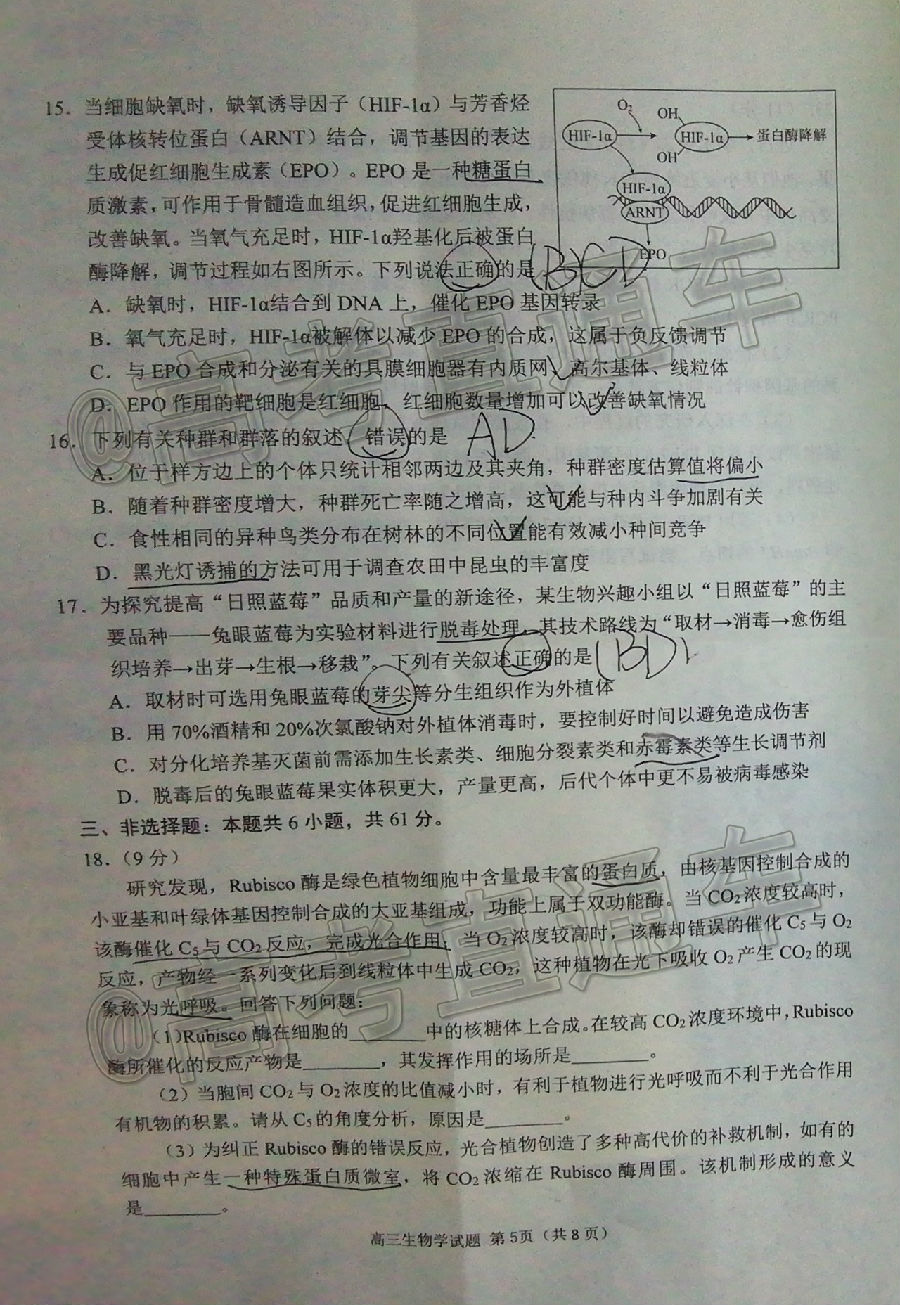 15．当细胞缺氧时，缺氧诱导因子（HIF-1α）与芳香烃
受体核转位蛋白（ARNT）结合，调节基因的表达
生成促红细胞生成素（EPO）。EPO 是一种糖蛋白
质激素，可作用于骨髓造血组织，促进红细胞生成，
改善缺氧。当氧气充足时，HIF-1α羟基化后被蛋白
酶降解，调节过程如右图所示。下列说法正确的是 (BCD)
O₂
OH
HIF-1α
HIF-1α
蛋白酶降解
OH
HIF-1α
ARNT
EPO
A．缺氧时，HIF-1α结合到 DNA 上，催化 EPO 基因转录
B．氧气充足时，HIF-1α被解体以减少 EPO 的合成，这属于负反馈调节
C．与 EPO 合成和分泌有关的具膜细胞器有内质网、高尔基体、线粒体
D．EPO 作用的靶细胞是红细胞，红细胞数量增加可以改善缺氧情况
16．下列有关种群和群落的叙述，错误的是 AD
A．位于样方边上的个体只统计相邻两边及其夹角，种群密度估算值将偏小
B．随着种群密度增大，种群死亡率随之增高，这可能与种内斗争加剧有关
C．食性相同的异种鸟类分布在树林的不同位置能有效减小种间竞争
D．黑光灯诱捕的方法可用于调查农田中昆虫的丰富度
17．为探究提高“日照蓝莓”品质和产量的新途径，某生物兴趣小组以“日照蓝莓”的主
要品种——兔眼蓝莓为实验材料进行脱毒处理，其技术路线为“取材→消毒→愈伤组
织培养→出芽→生根→移栽”。下列有关叙述正确的是 (BD)
A．取材时可选用兔眼蓝莓的芽尖等分生组织作为外植体
B．用 70%酒精和 20%次氯酸钠对外植体消毒时，要控制好时间以避免造成伤害
C．对分化培养基灭菌前需添加生长素类、细胞分裂素类和赤霉素类等生长调节剂
D．脱毒后的兔眼蓝莓果实体积更大，产量更高，后代个体中更不易被病毒感染
三、非选择题：本题共 6 小题，共 61 分。
18．（9 分）
研究发现，Rubisco 酶是绿色植物细胞中含量最丰富的蛋白质，由核基因控制合成的
小亚基和叶绿体基因控制合成的大亚基组成，功能上属于双功能酶。当 CO₂浓度较高时，
该酶催化 C₅与 CO₂反应，完成光合作用；当 O₂浓度较高时，该酶却错误的催化 C₅与 O₂
反应，产物经一系列变化后到线粒体中生成 CO₂，这种植物在光下吸收 O₂产生 CO₂的现
象称为光呼吸。回答下列问题：
（1）Rubisco 酶在细胞的________中的核糖体上合成。在较高 CO₂浓度环境中，Rubisco
酶所催化的反应产物是________，其发挥作用的场所是________。
（2）当胞间 CO₂与 O₂浓度的比值减小时，有利于植物进行光呼吸而不利于光合作用
有机物的积累。请从 C₅的角度分析，原因是________。
（3）为纠正 Rubisco 酶的错误反应，光合植物创造了多种高代价的补救机制，如有的
细胞中产生一种特殊蛋白质微室，将 CO₂浓缩在 Rubisco 酶周围。该机制形成的意义
是________。
高三生物学试题 第 5页（共 8 页）
@高考直通车
@高考直通车